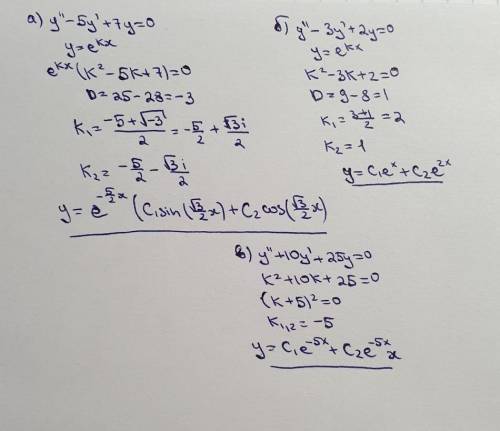 а) y'' - 5y' + 7y = 0
y = e^{kx}
e^{kx}(k² - 5k + 7) = 0
D = 25 - 28 = -3
k₁ = \frac{-5 + \sqrt{-3}}{2} = -\frac{5}{2} + \frac{\sqrt{3}i}{2}
k₂ = -\frac{5}{2} - \frac{\sqrt{3}i}{2}
y = e^{-\frac{5}{2}x} (C₁ sin(\frac{\sqrt{3}}{2}x) + C₂ cos(\frac{\sqrt{3}}{2}x)
б) y'' - 3y' + 2y = 0
y = e^{kx}
k² - 3k + 2 = 0
D = 9 - 8 = 1
k₁ = \frac{3+1}{2} = 2
k₂ = 1
y = C₁e^{x} + C₂e^{2x}
в) y'' + 10y' + 25y = 0
k² + 10k + 25 = 0
(k + 5)² = 0
k₁,₂ = -5
y = C₁e^{-5x} + C₂e^{-5x}x